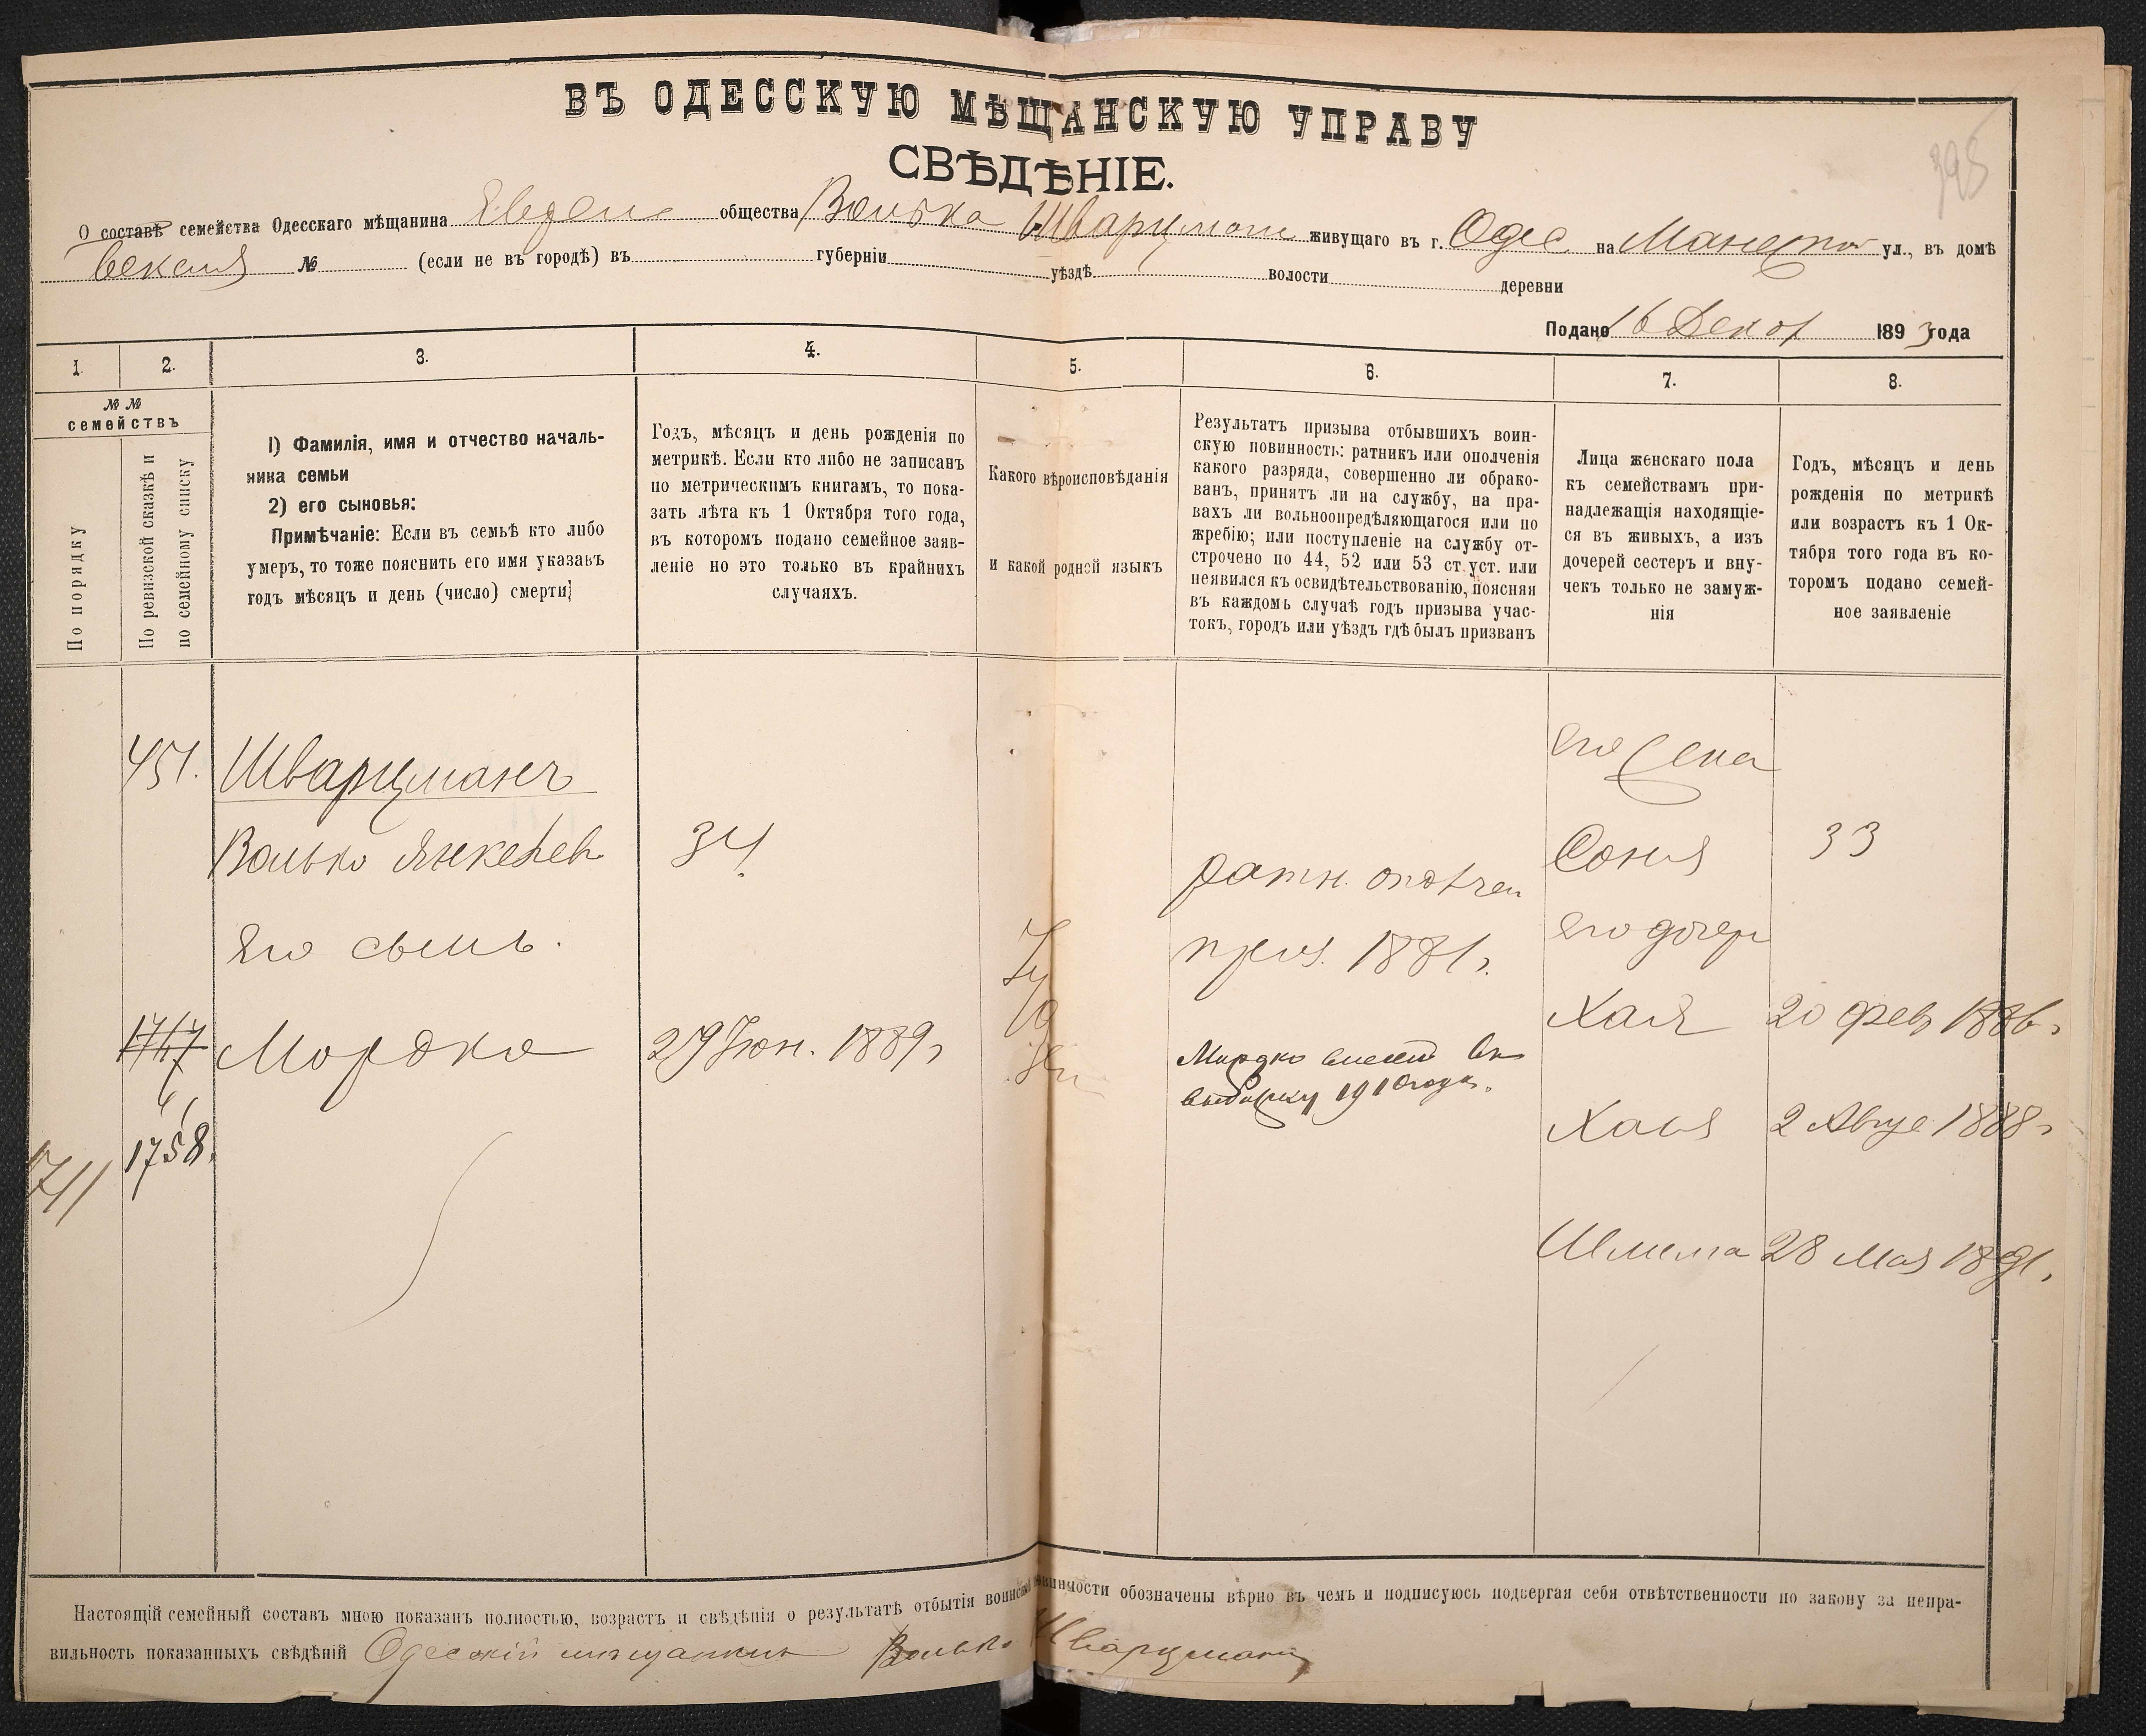 ВЪ ОДЕССКУЮ МѢЩАНСКУЮ УПРАВУ
СВѢДѢНІЕ.
395
О составѣ семейства Одесскаго мѣщанина общества Волька Шварцмана живущаго въ г. Одес на ул., въ домѣ
№ (если не въ городѣ) въ губерніи уѣздѣ волости деревни
Подано 16 Декаб 1893 года
1. 2. 3. 4. 5. 6. 7. 8.
№ №
семействъ
По порядку
По ревизской сказкѣ и
по семейному списку
1) Фамилія, имя и отчество началь-
ника семьи
2) его сыновья:
Примѣчаніе: Если въ семьѣ кто либо
умеръ, то тоже пояснить его имя указавъ
годъ мѣсяцъ и день (число) смерти;
Годъ, мѣсяцъ и день рожденія по
метрикѣ. Если кто либо не записанъ
по метрическимъ книгамъ, то пока-
зать лѣта къ 1 Октября того года,
въ которомъ подано семейное заяв-
леніе но это только въ крайнихъ
случаяхъ.
Какого вѣроисповѣданія
и какой родной языкъ
Результатъ призыва отбывшихъ воин-
скую повинность: ратникъ или ополченія
какого разряда, совершенно ли обрако-
ванъ, принятъ ли на службу, на пра-
вахъ ли вольноопредѣляющагося или по
жребію; или поступленіе на службу от-
строчено по 44, 52 или 53 ст. уст. или
неявился къ освидѣтельствованію, поясняя
въ каждомъ случаѣ годъ призыва учас-
токъ, городъ или уѣздъ гдѣ былъ призванъ
Лица женскаго пола
къ семействамъ при-
надлежащія находящіе-
ся въ живыхъ, а изъ
дочерей сестеръ и вну-
чекъ только не замуж-
нія
Годъ, мѣсяцъ и день
рожденія по метрикѣ
или возрастъ къ 1 Ок-
тября того года въ ко-
торомъ подано семей-
ное заявленіе
451. Шварцманъ его жена
Волько Янкелев 34 ратн. ополчен Соня 33
Его сынъ. Іу приз. 1881 г. его дочери
1747 Мордко 29 Іюн. 1889 г. де Хая 20 фев 1886 г
Мордко внесен въ
выборку 1910 года.
1758. 2 Авгус 1888 г
1711
28 Мая 1891.
Настоящій семейный составъ мною показанъ полностью, возрастъ и свѣдѣнія о результатѣ отбытія воинской повинности обозначены вѣрно въ чемъ и подписуюсь подвергая себя отвѣтственности по закону за непра-
вильность показанныхъ свѣдѣній Одесскій мѣщанинъ Волько Шварцманъ